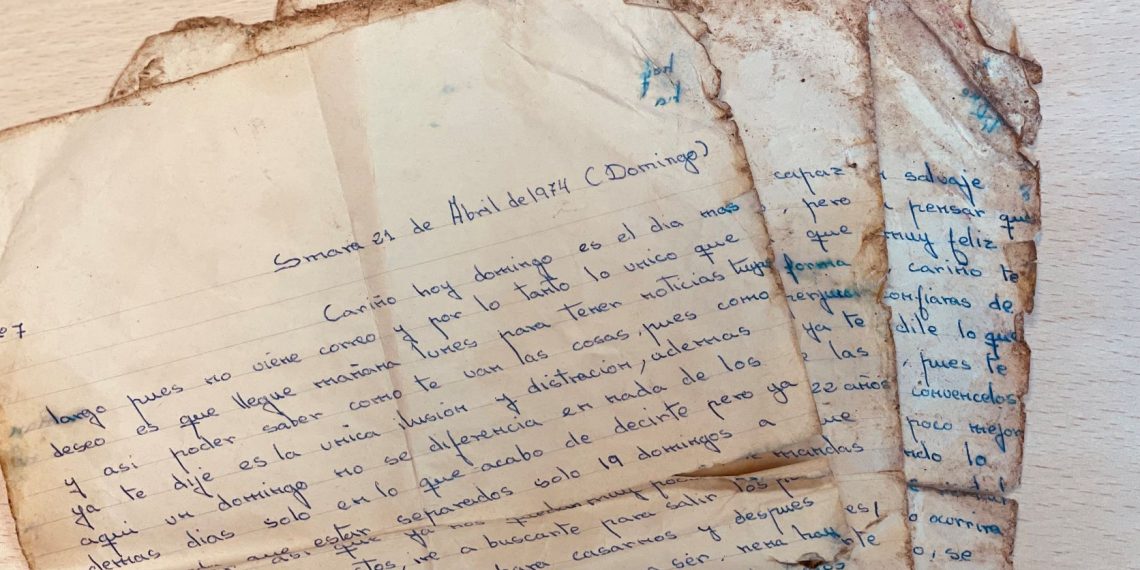 Smara 21 de Abril de 1974 (Domingo)
nº 7
Cariño hoy domingo es el dia mas
largo pues no viene correo y por lo tanto lo unico que
deseo es que llegue mañana lunes para tener noticias tuyas
y asi poder saber como te van las cosas, pues como
ya te dije es la unica ilusión y distracion, ademas
aqui un domingo no se diferencia en nada de los
demas dias solo en lo que acabo de decirte pero ya
que estar separados solo 19 domingos a
que ya nos quedan muy poc
ire a buscarte para salir los
para casarnos y despues
a sér, nena
capaz
, pero
que
forma
ya te
las
22 años
que
mandas
es
salvaje
pensar que
muy feliz
, cariño te
confiaras de
dile lo que
, pues te
convencelos
poco mejor
ndo la
o ocurrira
o, se